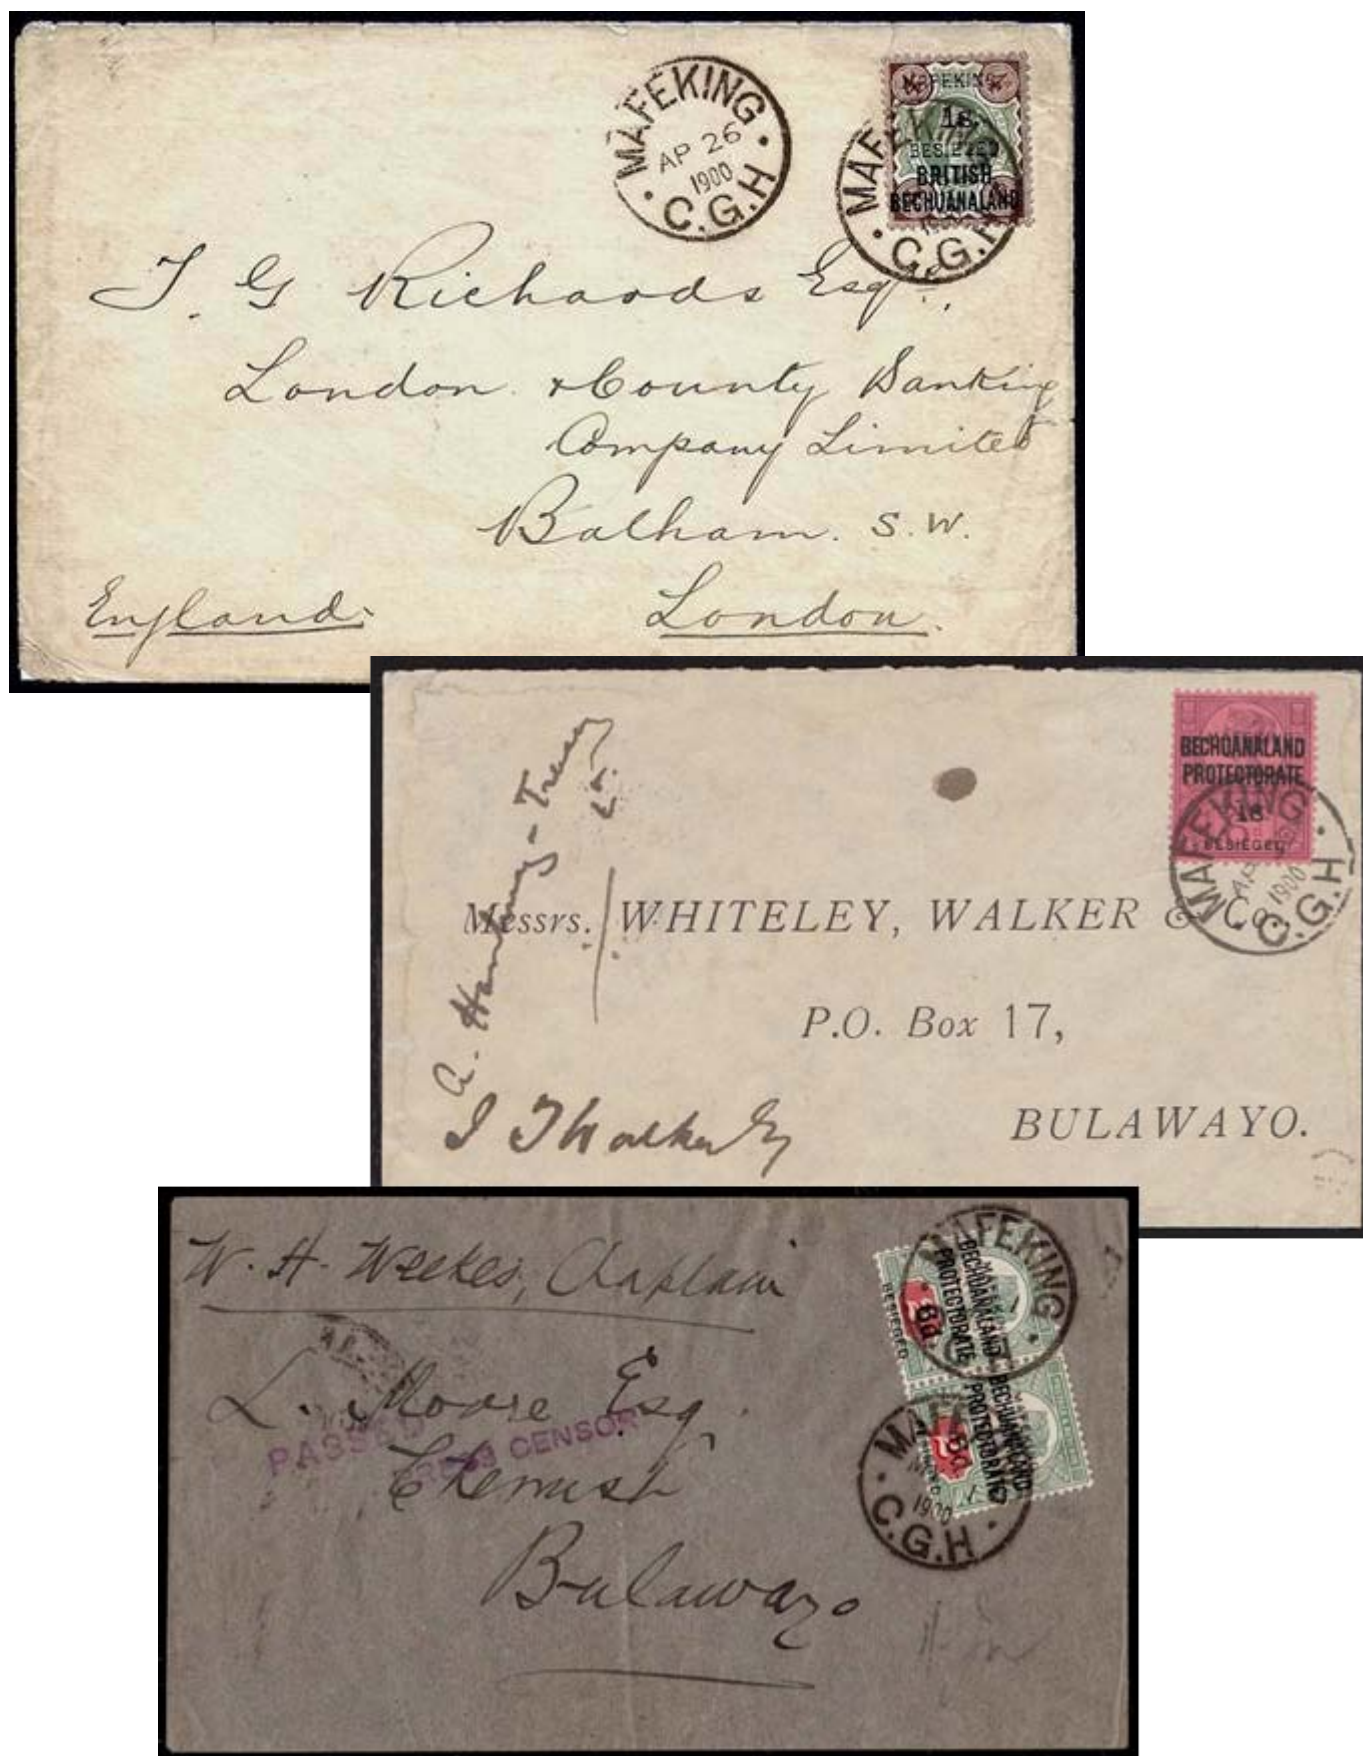 MAFEKING
AP 26
1900
C.G.H
MAFEKING
1s
BESIEGED
BRITISH
BECHUANALAND
MAFEKING
C.G.H
J. G Richards Esq.,
London & County Banking
Company Limited
Balham. S.W.
England.
London.
BECHUANALAND
PROTECTORATE
1s
BESIEGED
MAFEKING
AP
1900
C.G.H
Messrs. WHITELEY, WALKER & Co.
P.O. Box 17,
BULAWAYO.
W. H. Weekes, Chaplain
MAFEKING
BECHUANALAND
PROTECTORATE
6d.
BESIEGED
BECHUANALAND
PROTECTORATE
6d.
MAFEKING
1900
C.G.H
L. Moore Esq.
PASSED PRESS CENSOR
Chemist
Bulawayo